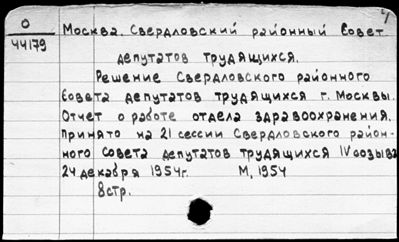 О
44179
Москва. Свердловский районный Совет
депутатов трудящихся.
Решение Свердловского районного
Совета депутатов трудящихся г. Москвы.
Отчет о работе отдела здравоохранения.
Принято на 21 сессии Свердловского район-
ного Совета депутатов трудящихся IV созыва
24 декабря 1954г. М, 1954
8стр.